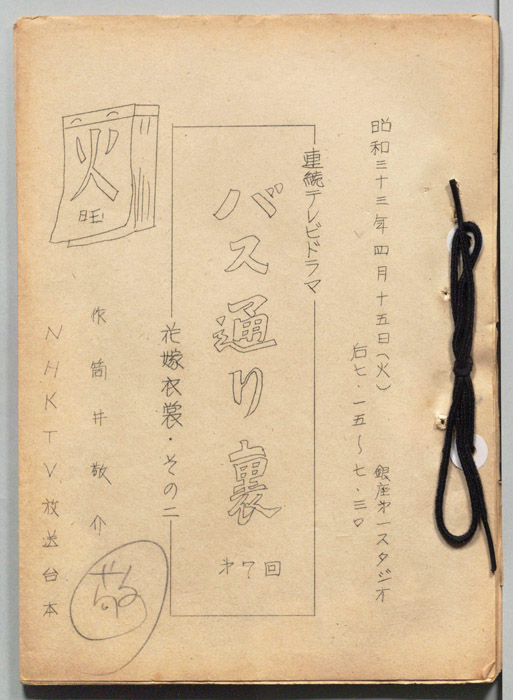 昭和三十三年四月十五日(火)
后七・一五〜七・三〇
銀座㐧一スタジオ
連続テレビドラマ
バス通り裏
㐧7回
花嫁衣裳・その二
火
曜
作 筒井敬介
NHKTV放送台本
敬